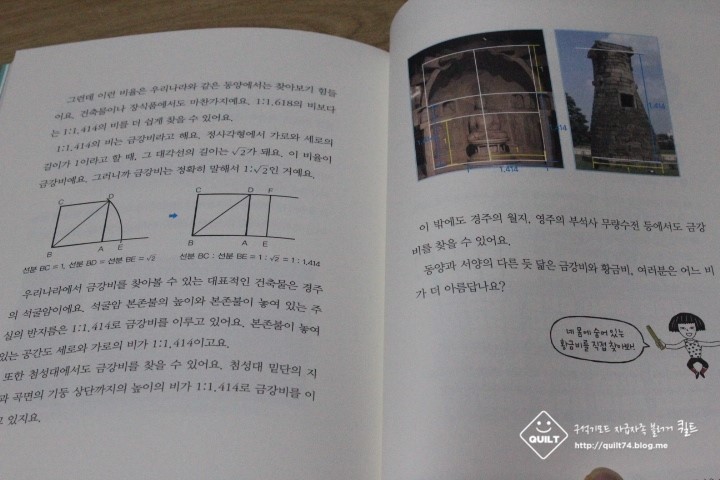 그런데 이런 비율은 우리나라와 같은 동양에서는 찾아보기 힘들
어요. 건축물이나 장식품에서도 마찬가지예요. 1:1.618의 비보다
는 1:1.414의 비를 더 쉽게 찾을 수 있어요.
1:1.414의 비는 금강비라고 해요. 정사각형에서 가로와 세로의
길이가 1이라고 할 때, 그 대각선의 길이는 √2가 돼요. 이 비율이
금강비예요. 그러니까 금강비는 정확히 말해서 1:√2인 거예요.
C D
B A E
C D F
B A E
선분 BC = 1, 선분 BD = 선분 BE = √2
선분 BC : 선분 BE = 1 : √2 = 1 : 1.414
우리나라에서 금강비를 찾아볼 수 있는 대표적인 건축물은 경주
의 석굴암이에요. 석굴암 본존불의 높이와 본존불이 놓여 있는 주
실의 반지름은 1:1.414로 금강비를 이루고 있어요. 본존불이 놓여
있는 공간도 세로와 가로의 비가 1:1.414이고요.
또한 첨성대에서도 금강비를 찾을 수 있어요. 첨성대 밑단의 지
과 곡면의 기둥 상단까지의 높이의 비가 1:1.414로 금강비를 이
고 있지요.
1.414
1.414
1.414
1
이 밖에도 경주의 월지, 영주의 부석사 무량수전 등에서도 금강
비를 찾을 수 있어요.
동양과 서양의 다른 듯 닮은 금강비와 황금비, 여러분은 어느 비
가 더 아름답나요?
네 몸에 숨어 있는
황금비를 직접 찾아봐!
QUILT
구석기포트 자급자족 블로거 퀼트
http://quilt74.blog.me